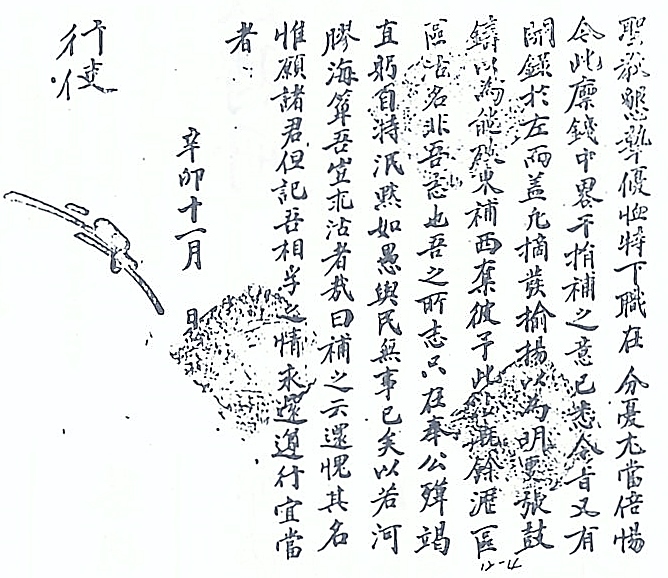 聖教懇摯優恤特下職在分憂尤當倍惕
今此廩錢中畧干捐補之意已悉令旨又有
開錄於左而盖凡摘發揄揚以為明更號鼓
鑄以為能破東補西奪彼予此餘瀝區
區沽名非吾志也吾之所志只在奉公殫竭
直躬自持泯黙如愚與民無事已矣以若河
膠海算吾豈求沾者哉曰補之云還愧其名
惟願諸君但記吾相孚之情永遵行宜當
者
辛卯十一月
日
行使
12-4